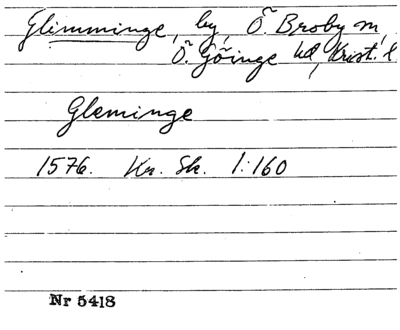 Glimminge, by, Ö. Broby sn,
Ö. Göinge hd, Krist. l.
Gleminge
1576. Kr. Sk. 1:160
Nr 5418